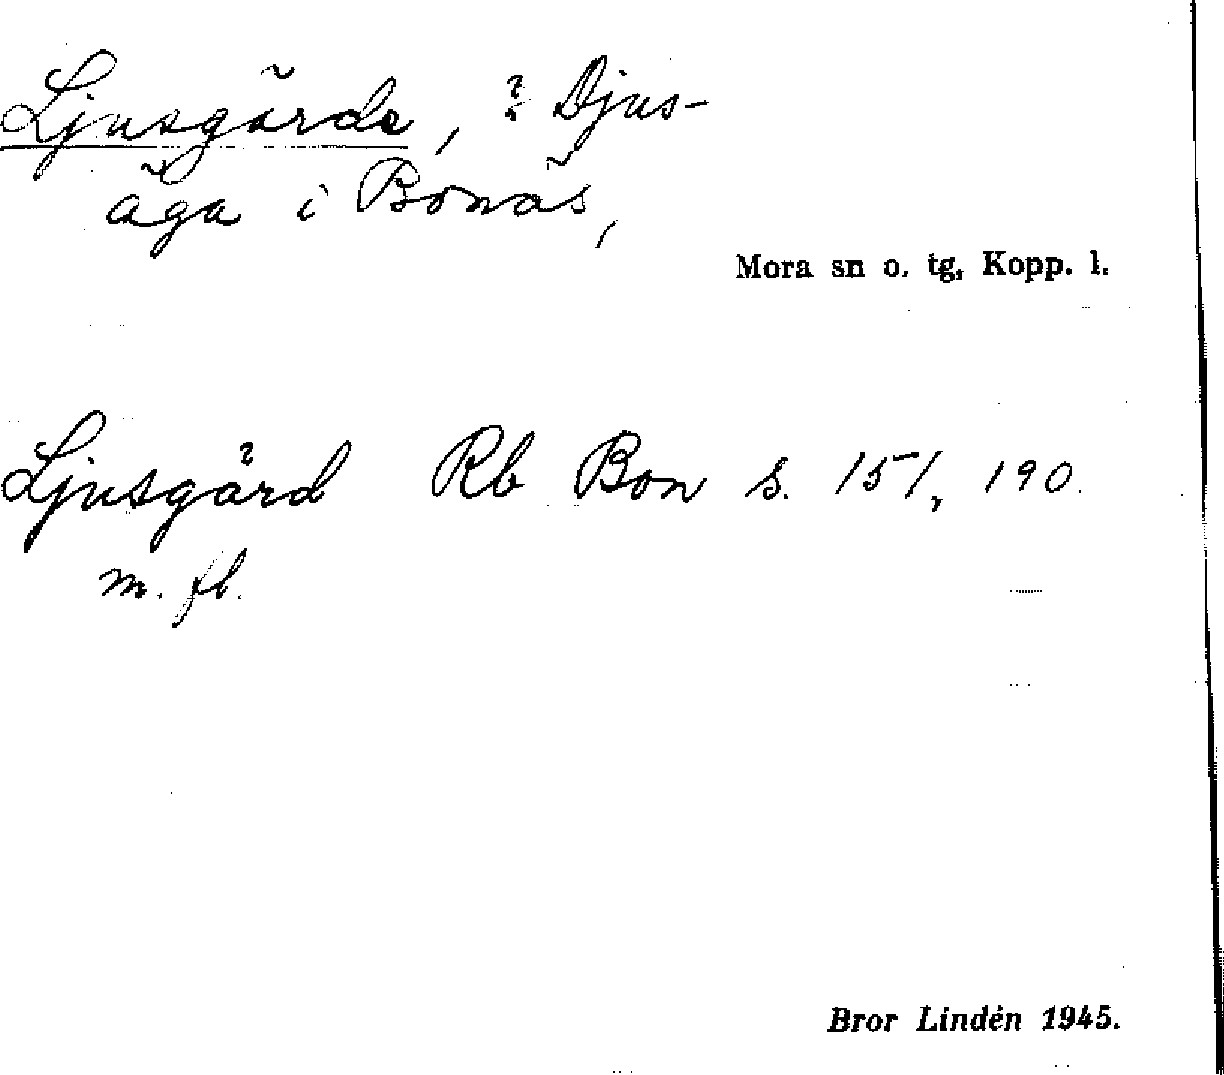 Ljusgärde, ? Djus-
äga i Bonäs,
Mora sn o. tg, Kopp. l.
Ljusgård Rb Bon s. 151, 190.
m. fl.
Bror Lindén 1945.